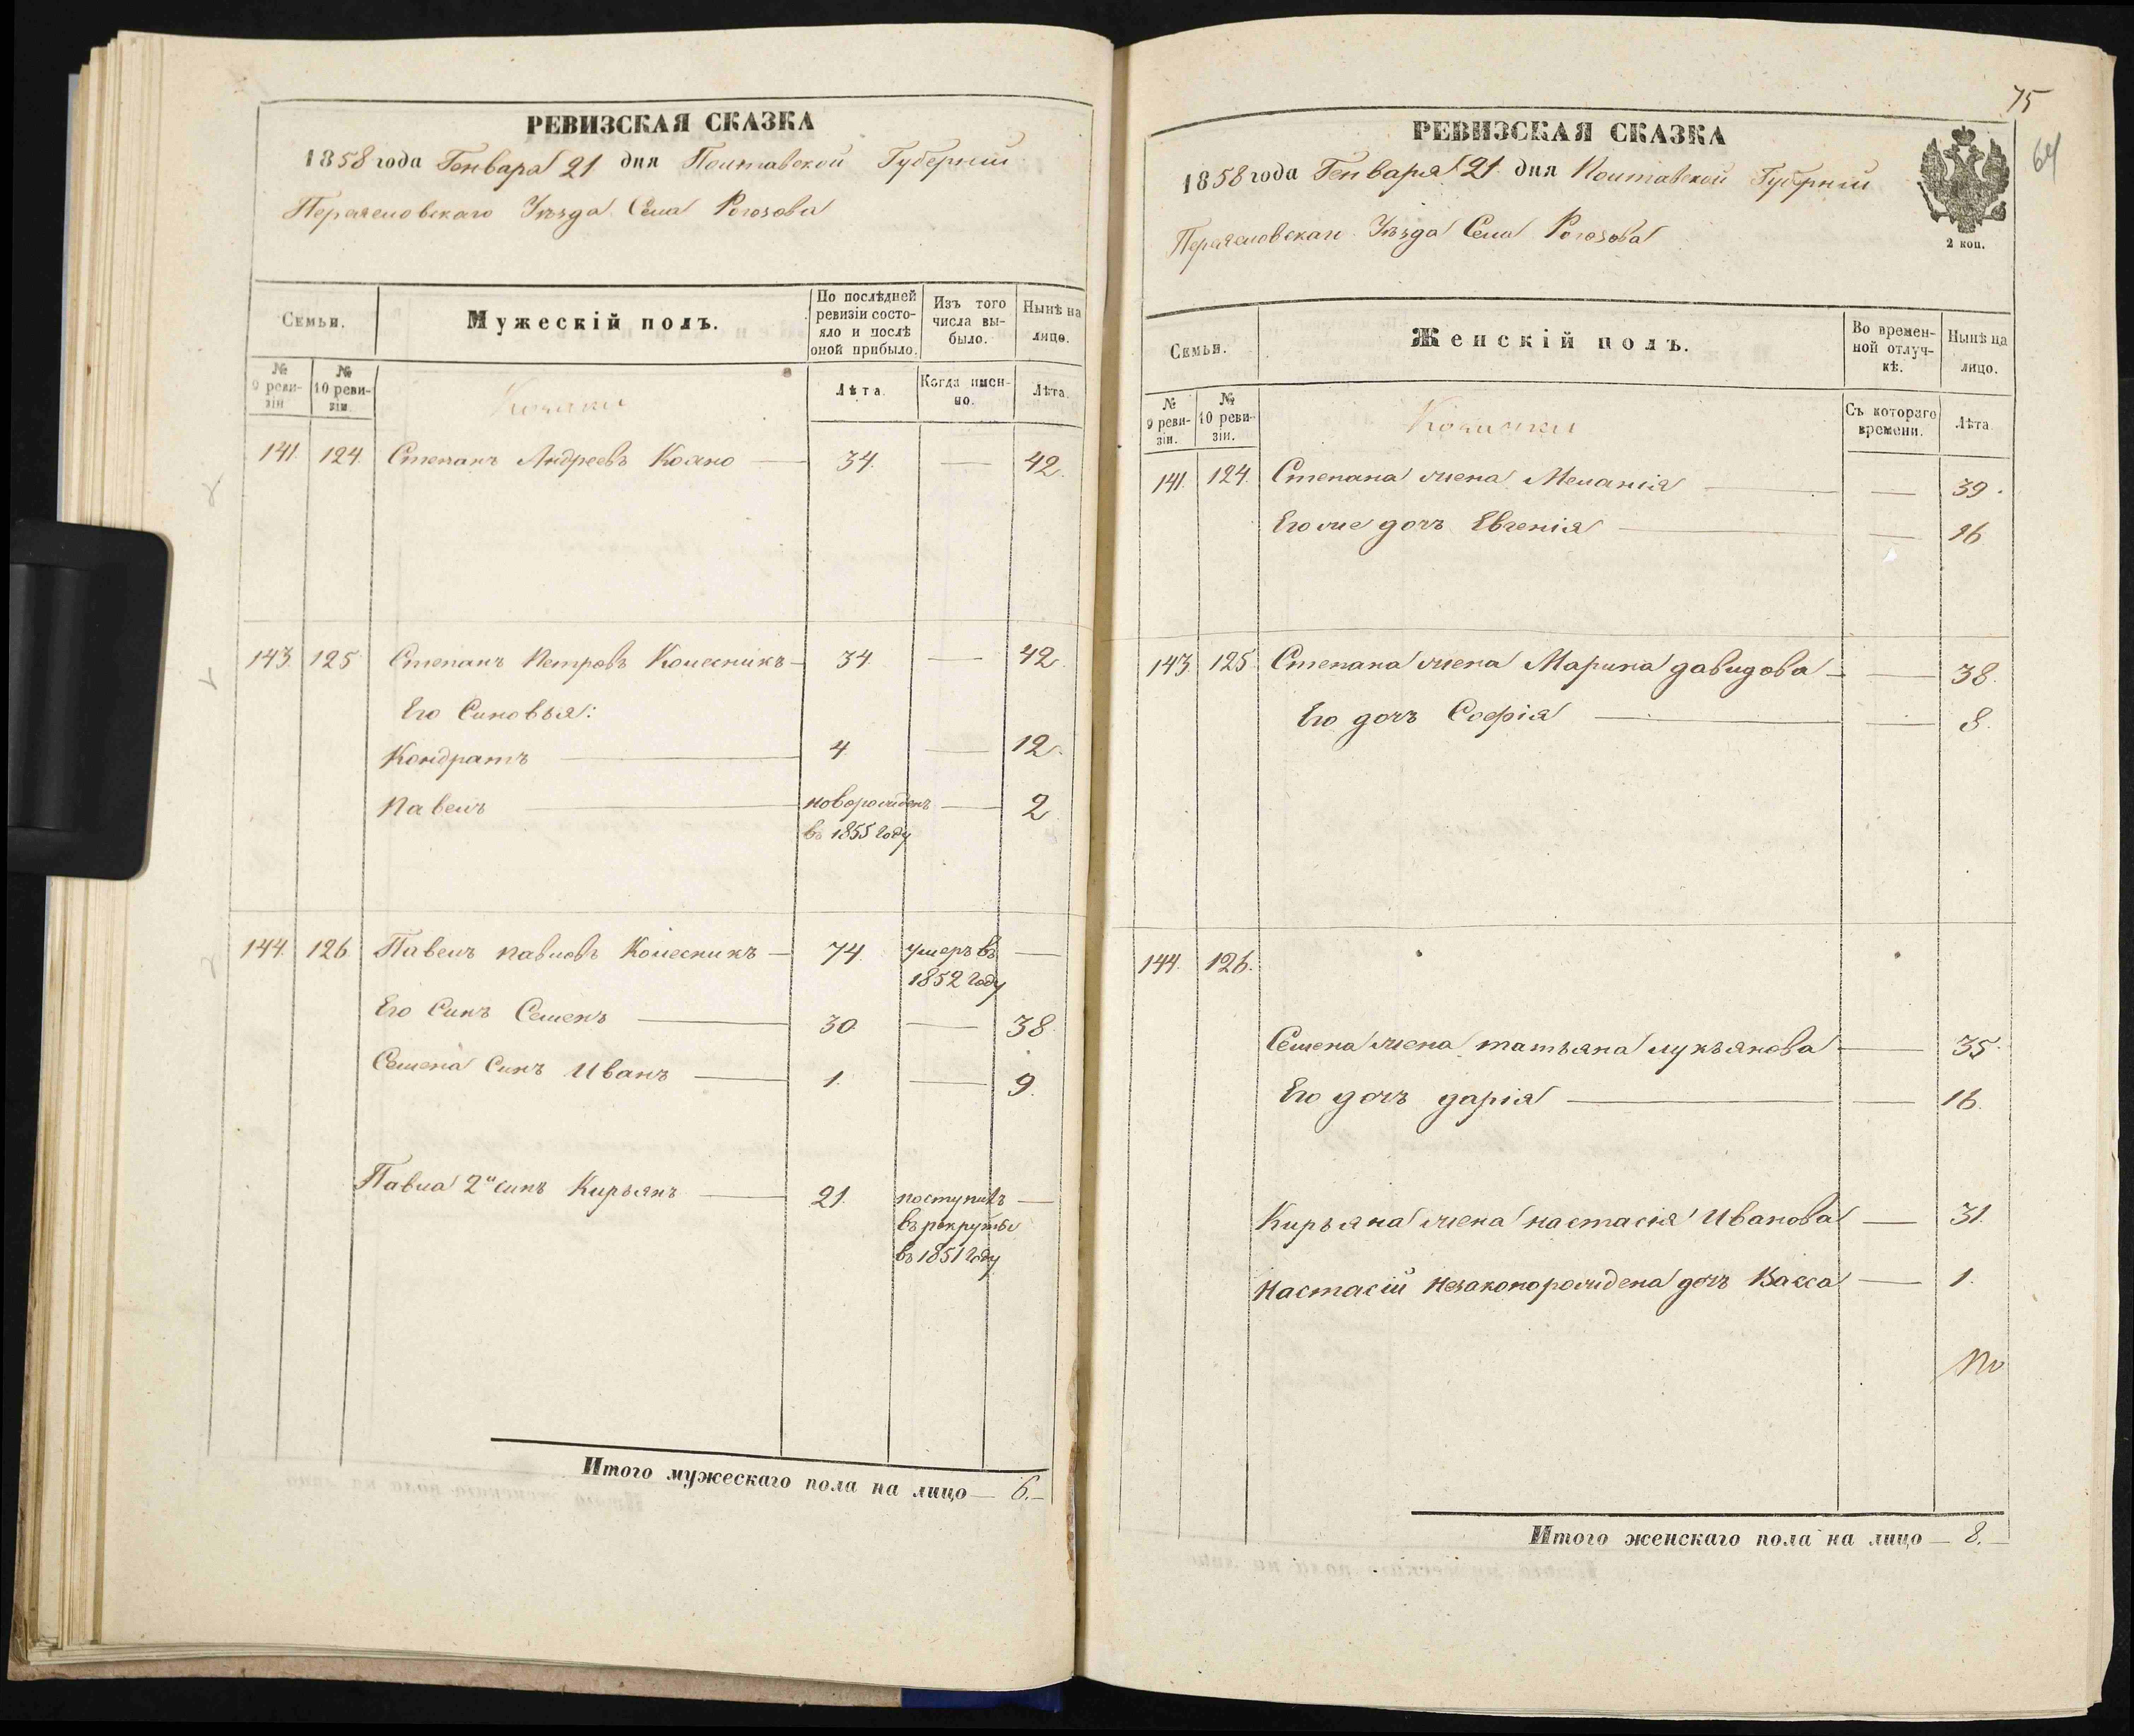 РЕВИЗСКАЯ СКАЗКА
1858 года Генваря 21 дня Полтавской Губерніи
Переяславскаго Уѣзда Села Рогозова
Семьи.
Мужескій полъ.
По послѣдней ревизіи состояло и послѣ оной прибыло.
Изъ того числа выбыло.
Нынѣ на лицо.
№ 9 ревизіи
№ 10 ревизіи
Козаки
Лѣта.
Когда именно.
Лѣта.
141. 124. Степанъ Андреевъ — 34. — 42.
143. 125. Степанъ Петровъ Колесникъ — 34. — 42.
Его Синовья:
Кондратъ — 4. — 12.
Павелъ — новорожденъ — 2
въ 1855 году
144. 126. Павелъ павловъ Колесникъ — 74. умеръ въ —
1852 году
Его Синъ Семенъ — 30. — 38.
Семена Синъ Иванъ — 1. — 9.
Павла 2й синъ Кирьянъ — 21. поступилъ —
въ рекруты
въ 1851 году
Итого мужескаго пола на лицо — 6. —
75
64
РЕВИЗСКАЯ СКАЗКА
1858 года Генваря 21 дня Полтавской Губерніи
Переяславскаго Уѣзда Села Рогозова
2 коп.
Семьи.
Женскій полъ.
Во временной отлучкѣ.
Нынѣ на лицо.
№ 9 ревизіи.
№ 10 ревизіи.
Козачки
Съ котораго времени.
Лѣта.
141. 124. Степана жена Меланія — — 39.
Его же дочъ Евгенія — — 16
143. 125. Степана жена Марина давидова — — 38.
Его дочъ Софія — — 8.
144. 126.
Семена жена татьяна лукъянова — 35.
Его дочъ дарія — — 16.
Кирьяна жена настасія Иванова — 31.
Настасіи незаконорождена дочъ Васса — 1.
Итого женскаго пола на лицо — 8. —